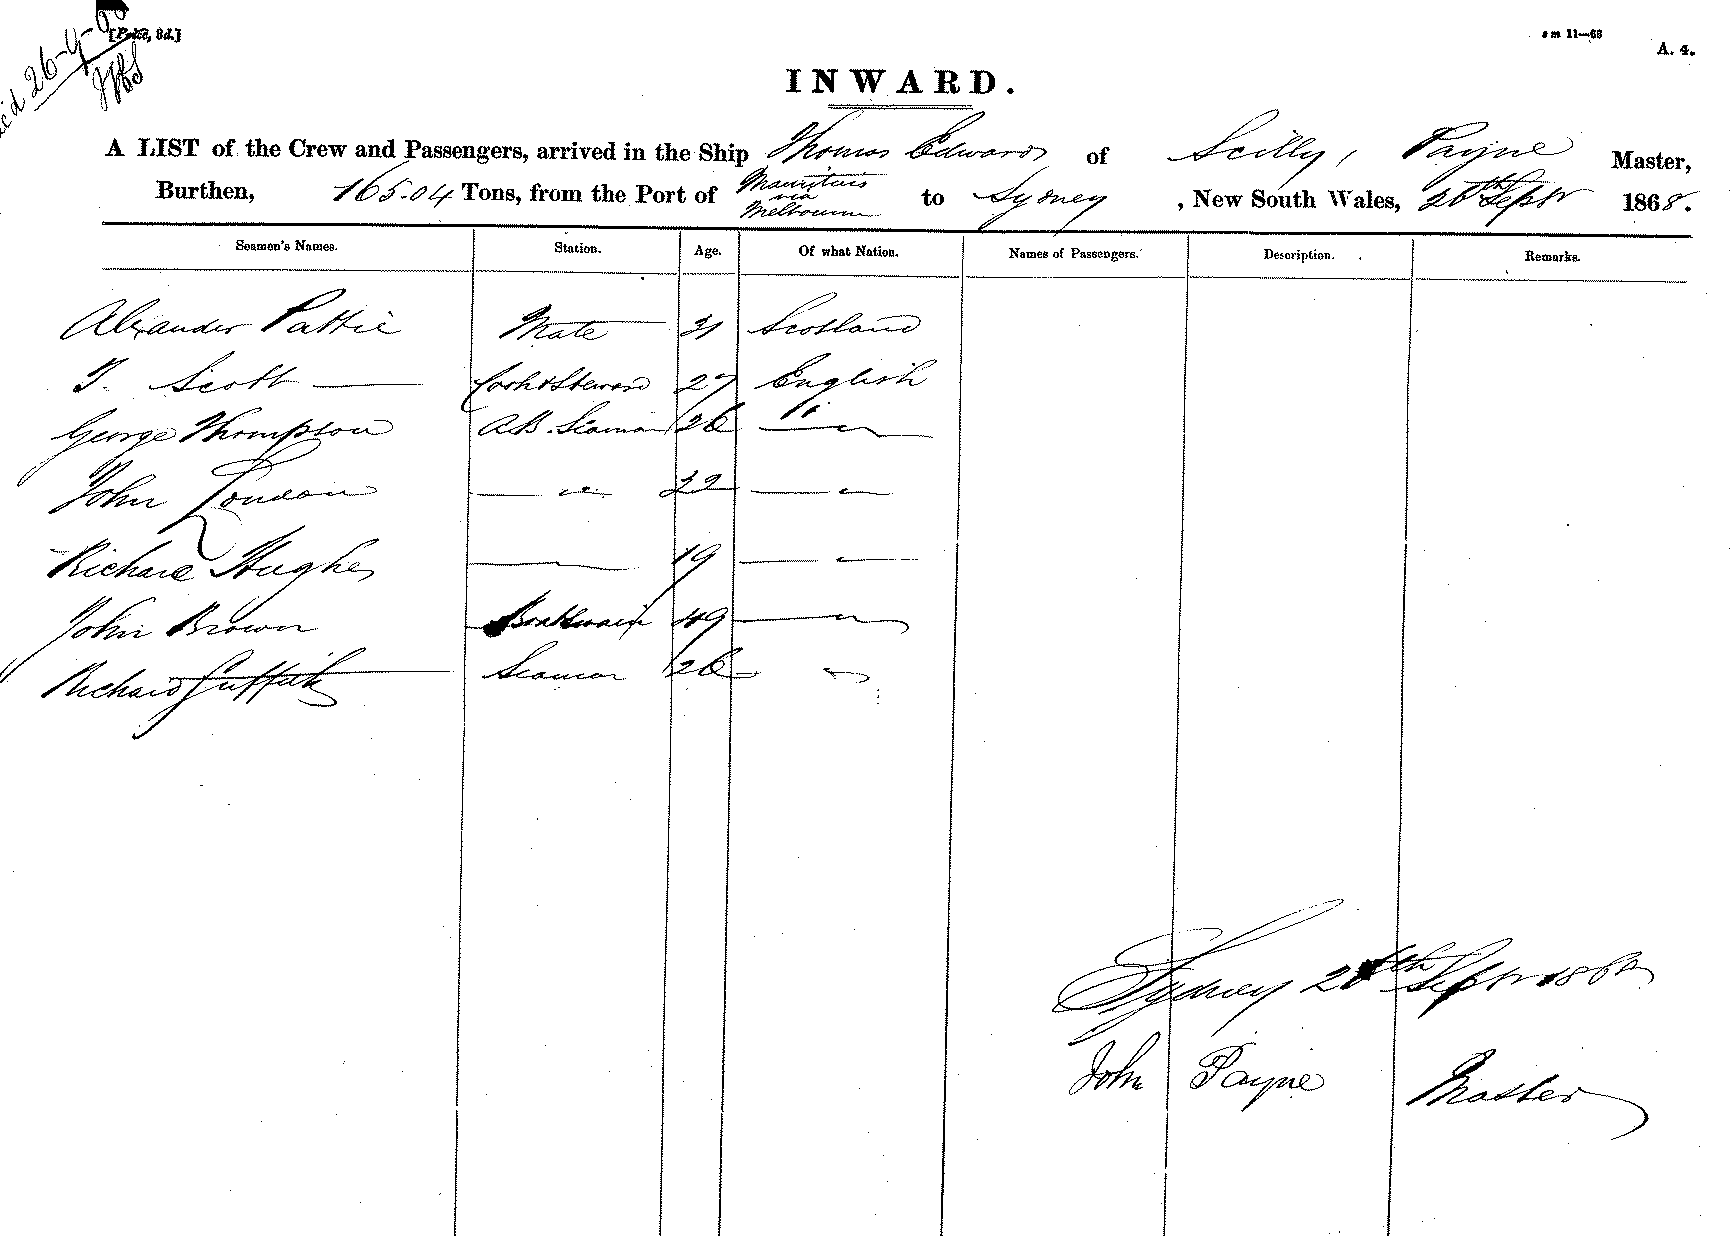 26-9-68
[Price, 8d.]
s m 11—68
A. 4.
INWARD.
A LIST of the Crew and Passengers, arrived in the Ship Thomas Edward of Scilly, Payne Master,
Burthen, 165.04 Tons, from the Port of Mauritius via Melbourne to Sydney , New South Wales, 26th Septr 1868.
Seamen's Names. Station. Age. Of what Nation. Names of Passengers. Description. Remarks.
Alexander Pattie Mate 31 Scotland
T. Scott Cook & Steward 27 English
George Thompson A.B. Seaman 26 "
John Loudan " 22 "
Richard Hughes 19 "
John Brown Boatswain 49 "
Richard Griffith Seaman 26 "
Sydney 26th Septr 1868
John Payne Master